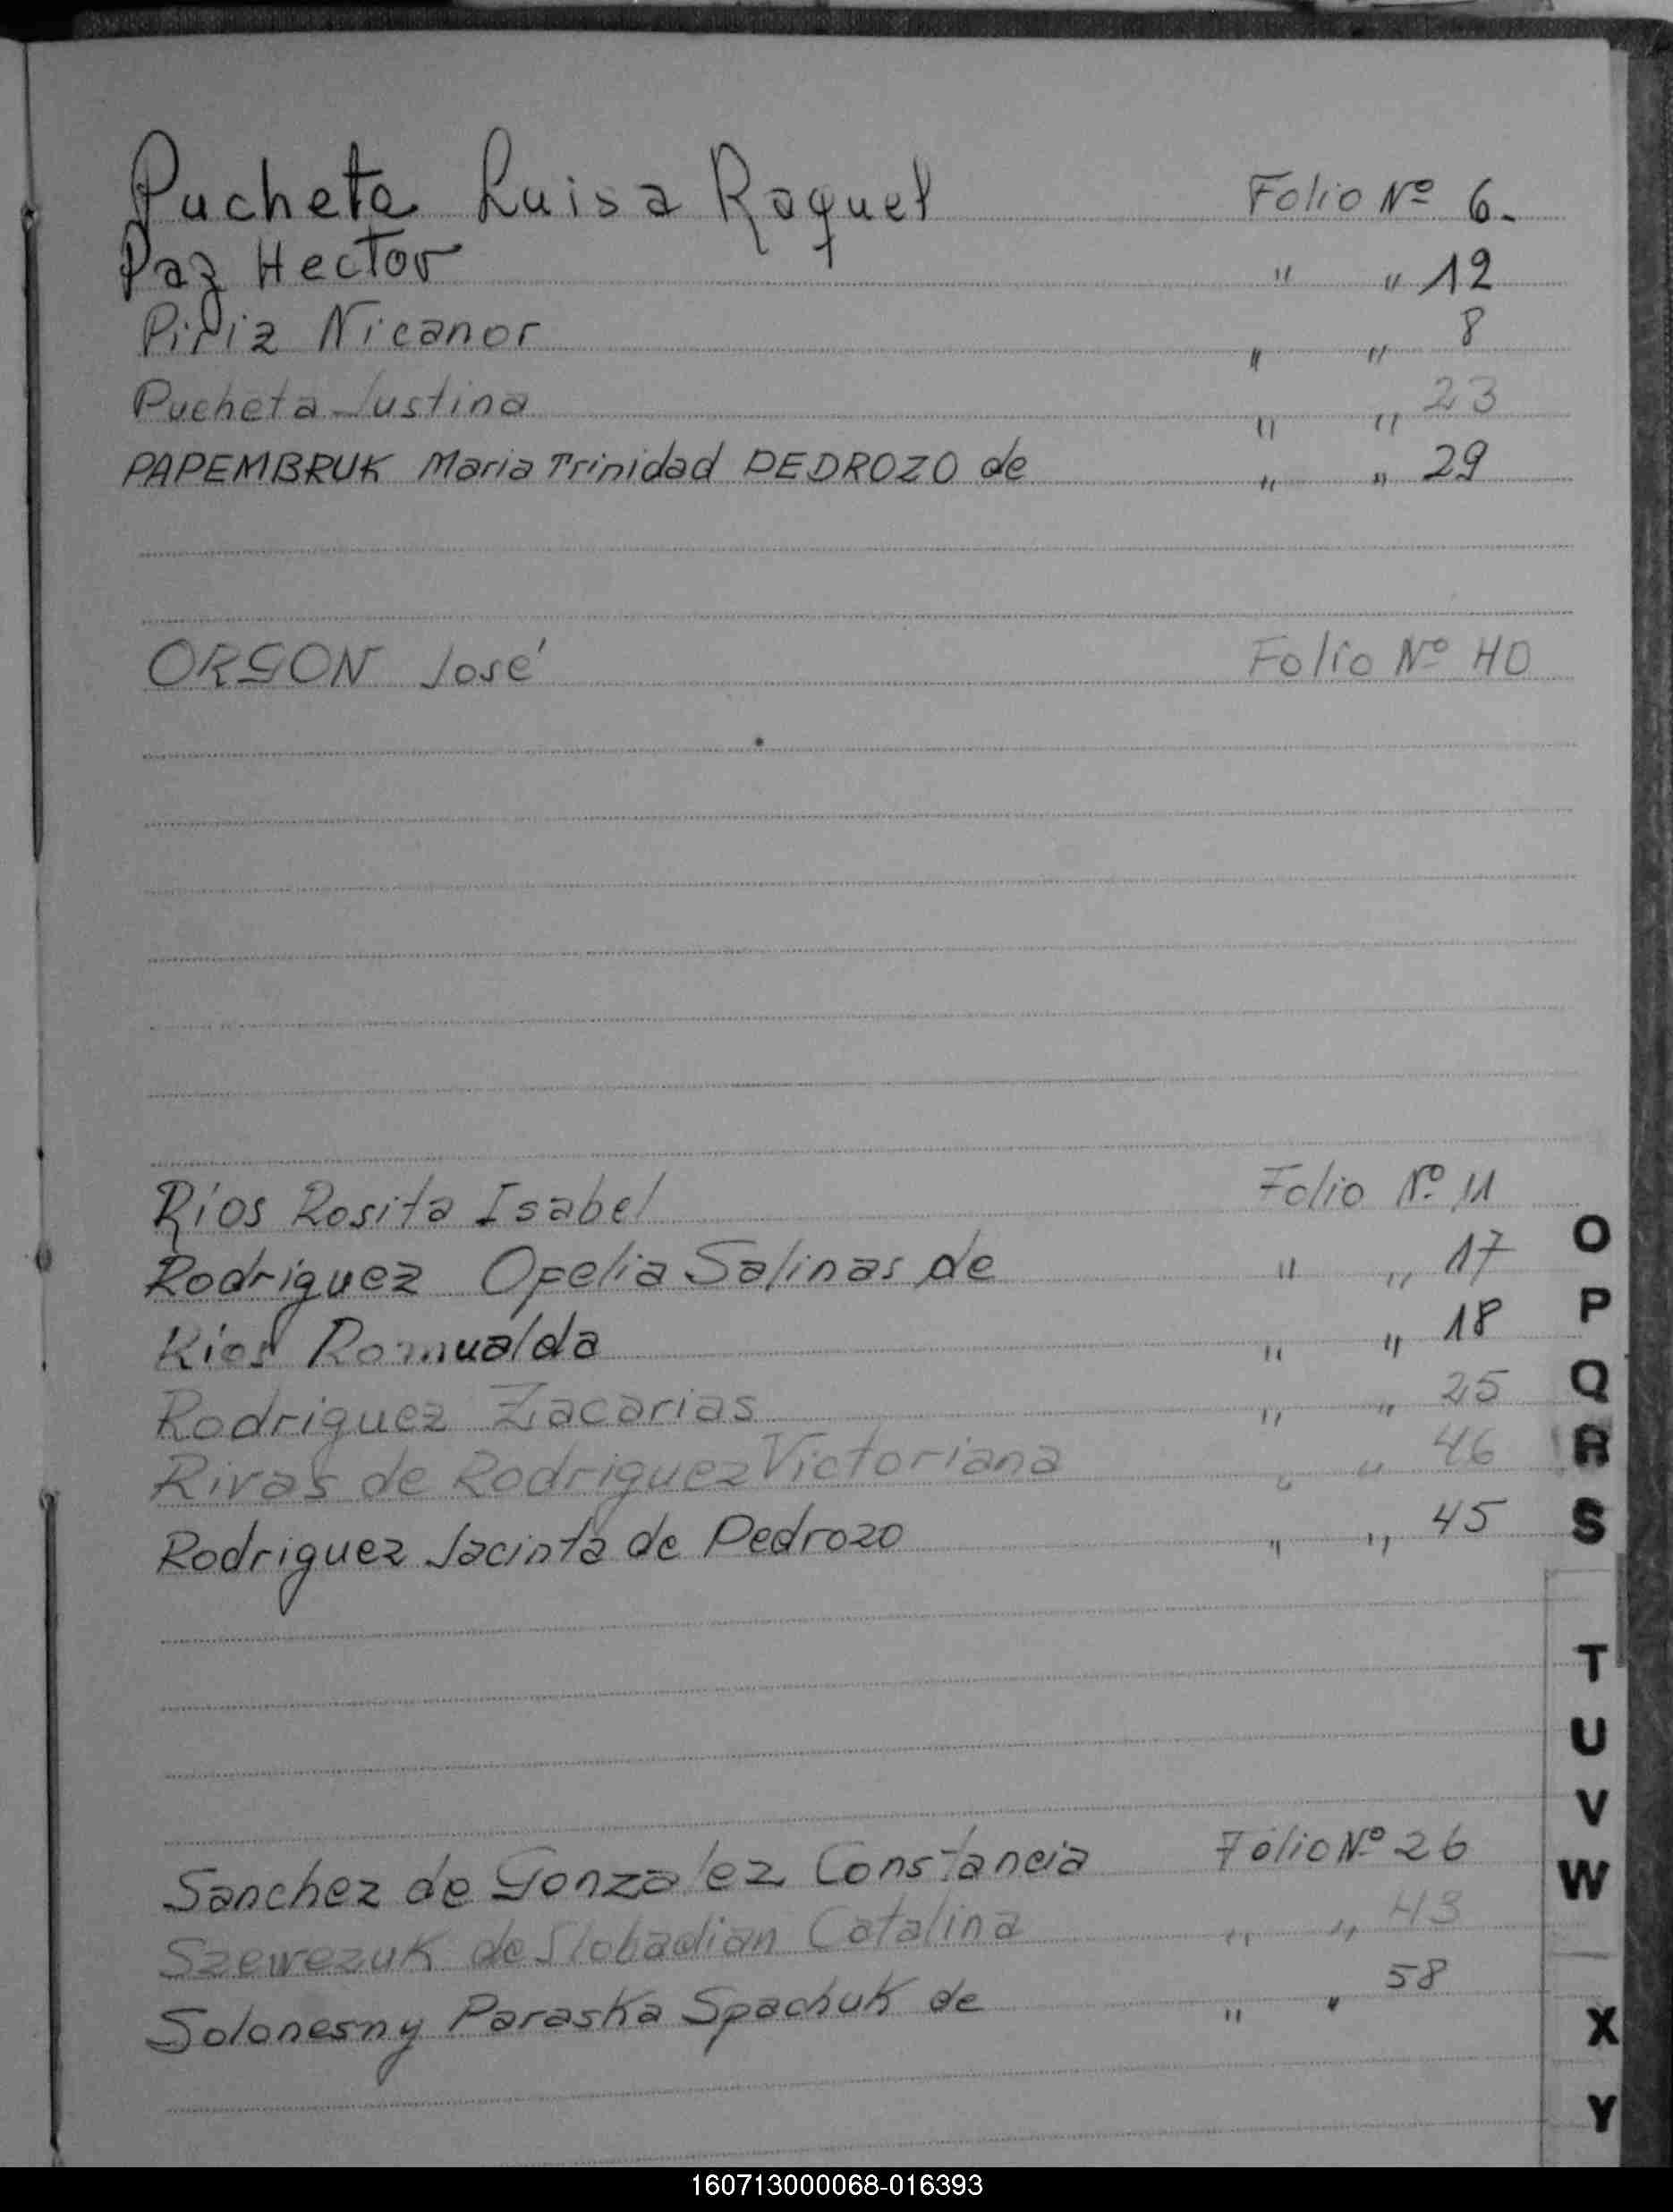 Pucheta Luisa Raquel Folio Nº 6.
Paz Hector " " 12
Piriz Nicanor " " 8
Pucheta Justina " " 23
PAPEMBRUK Maria Trinidad PEDROZO de " " 29
ORGON José Folio Nº 40
Ríos Rosita Isabel Folio Nº 11
Rodriguez Ofelia Salinas de " " 17
Rios Romualda " " 18
Rodriguez Zacarias " " 25
Rivas de Rodriguez Victoriana " " 46
Rodriguez Jacinta de Pedrozo " " 45
Sanchez de Gonzalez Constancia Folio Nº 26
Szewezuk de Slobadian Catalina " " 43
Solonesny Paraska Spachuk de " " 58
O
P
Q
R
S
T
U
V
W
X
Y
160713000068-016393